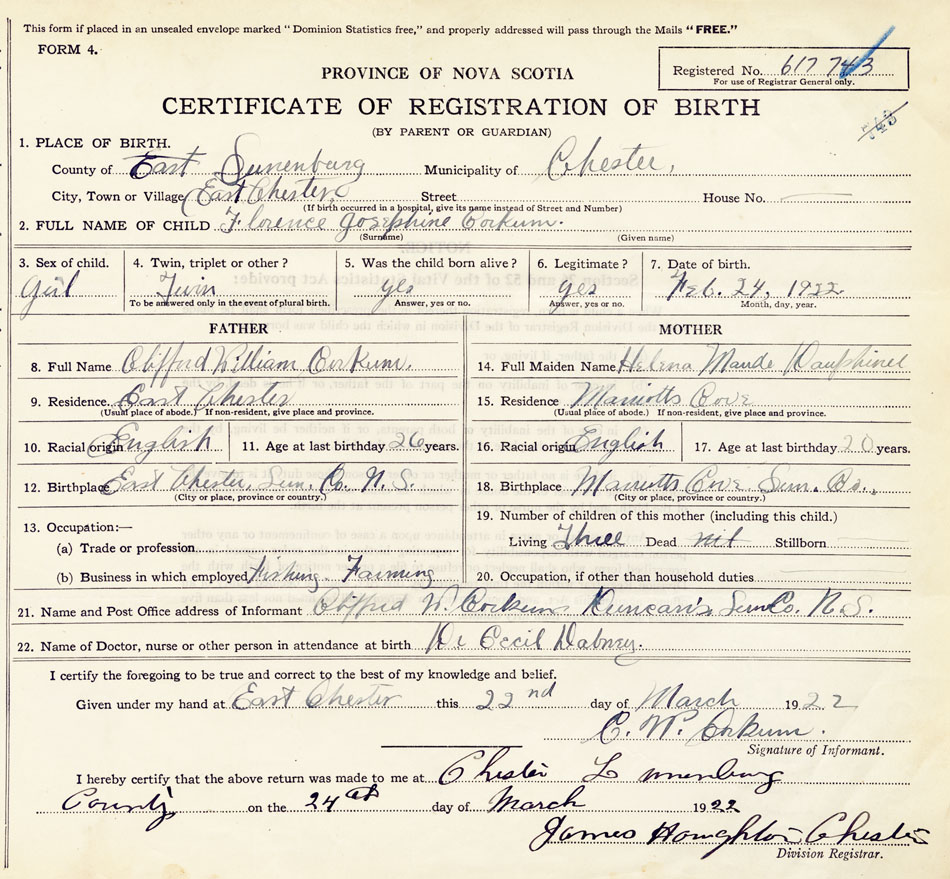 This form if placed in an unsealed envelope marked "Dominion Statistics free," and properly addressed will pass through the Mails "FREE."
FORM 4.
Registered No. 617 743
For use of Registrar General only.
PROVINCE OF NOVA SCOTIA
CERTIFICATE OF REGISTRATION OF BIRTH
(BY PARENT OR GUARDIAN)
743
1. PLACE OF BIRTH.
County of East Lunenburg Municipality of Chester,
City, Town or Village East Chester Street House No.
(If birth occurred in a hospital, give its name instead of Street and Number)
2. FULL NAME OF CHILD Florence Josephine Corkum.
(Surname) (Given name)
3. Sex of child. 4. Twin, triplet or other? 5. Was the child born alive? 6. Legitimate? 7. Date of birth.
Girl Twin yes yes Feb. 24, 1922
To be answered only in the event of plural birth. Answer, yes or no. Answer, yes or no. Month, day, year.
FATHER MOTHER
8. Full Name Clifford William Corkum. 14. Full Maiden Name Helena Maude Dauphinee
9. Residence. East Chester 15. Residence Marriotts Cove
(Usual place of abode.) If non-resident, give place and province. (Usual place of abode.) If non-resident, give place and province.
10. Racial origin English 11. Age at last birthday 26 years. 16. Racial origin English 17. Age at last birthday 20 years.
12. Birthplace East Chester, Lun. Co. N. S. 18. Birthplace Marriotts Cove Lun. Co.,
(City or place, province or country.) (City or place, province or country.)
13. Occupation:— 19. Number of children of this mother (including this child.)
(a) Trade or profession Living Three Dead nil Stillborn
(b) Business in which employed Fishing. Farming 20. Occupation, if other than household duties
21. Name and Post Office address of Informant Clifford W. Corkum Duncan's Lun Co. N. S.
22. Name of Doctor, nurse or other person in attendance at birth Dr Cecil
I certify the foregoing to be true and correct to the best of my knowledge and belief.
Given under my hand at East Chester this 22nd day of March 1922
C. W. Corkum.
Signature of Informant.
I hereby certify that the above return was made to me at Chester Lunenburg
County on the 24th day of March 1922
James Houghton Chester
Division Registrar.